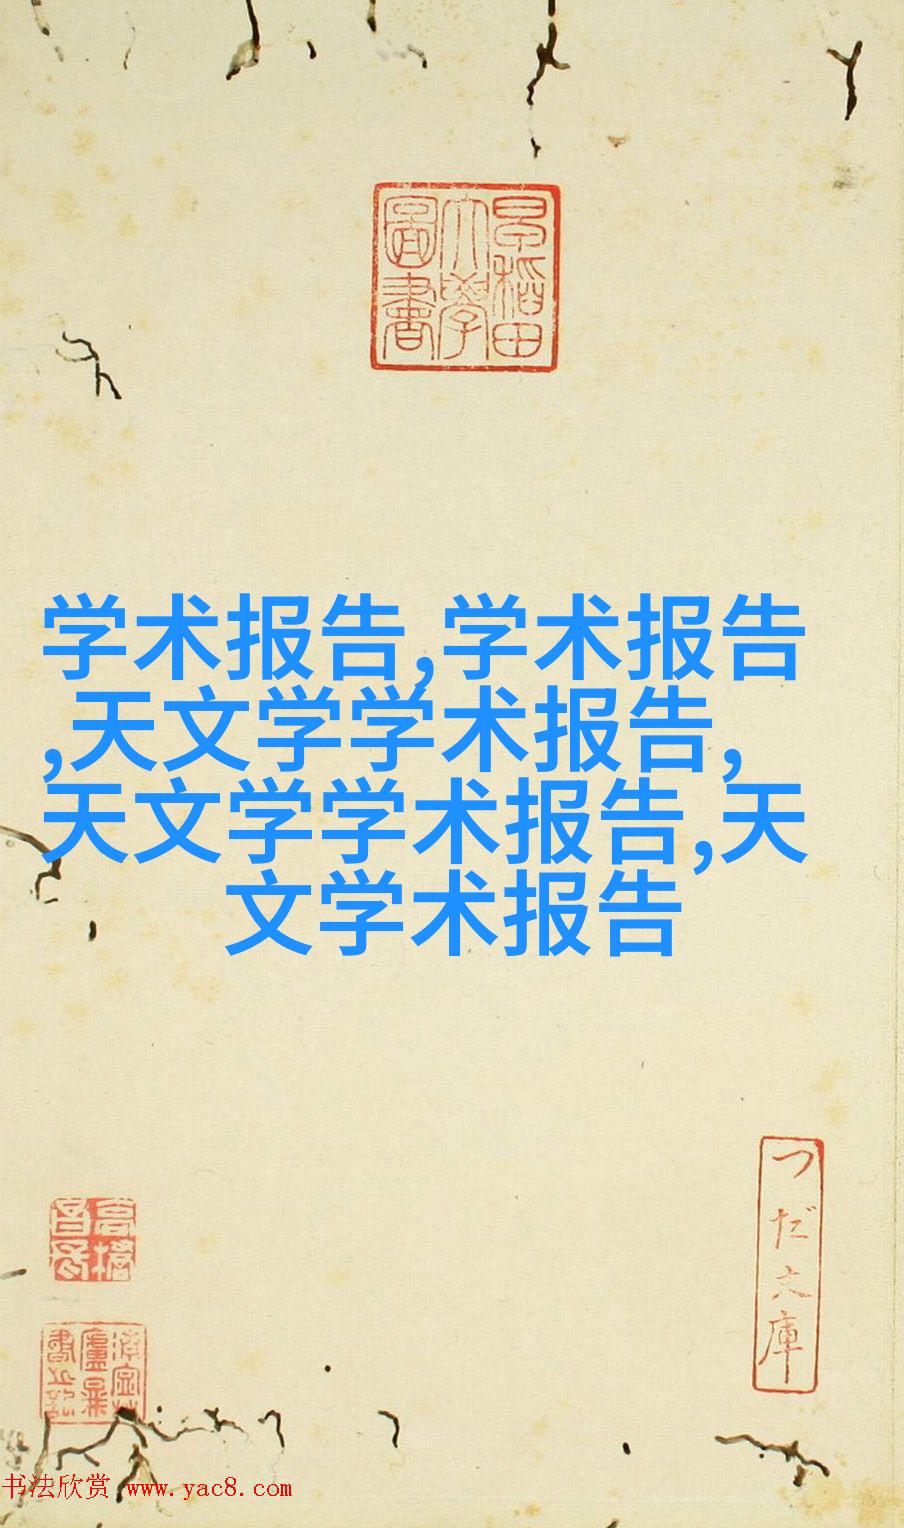 早稻田
大學
圖書
学术报告,学术报告
,天文学学术报告,
天文学学术报告,天
文学术报告
つだ文庫
书法欣赏 www.yac8.com